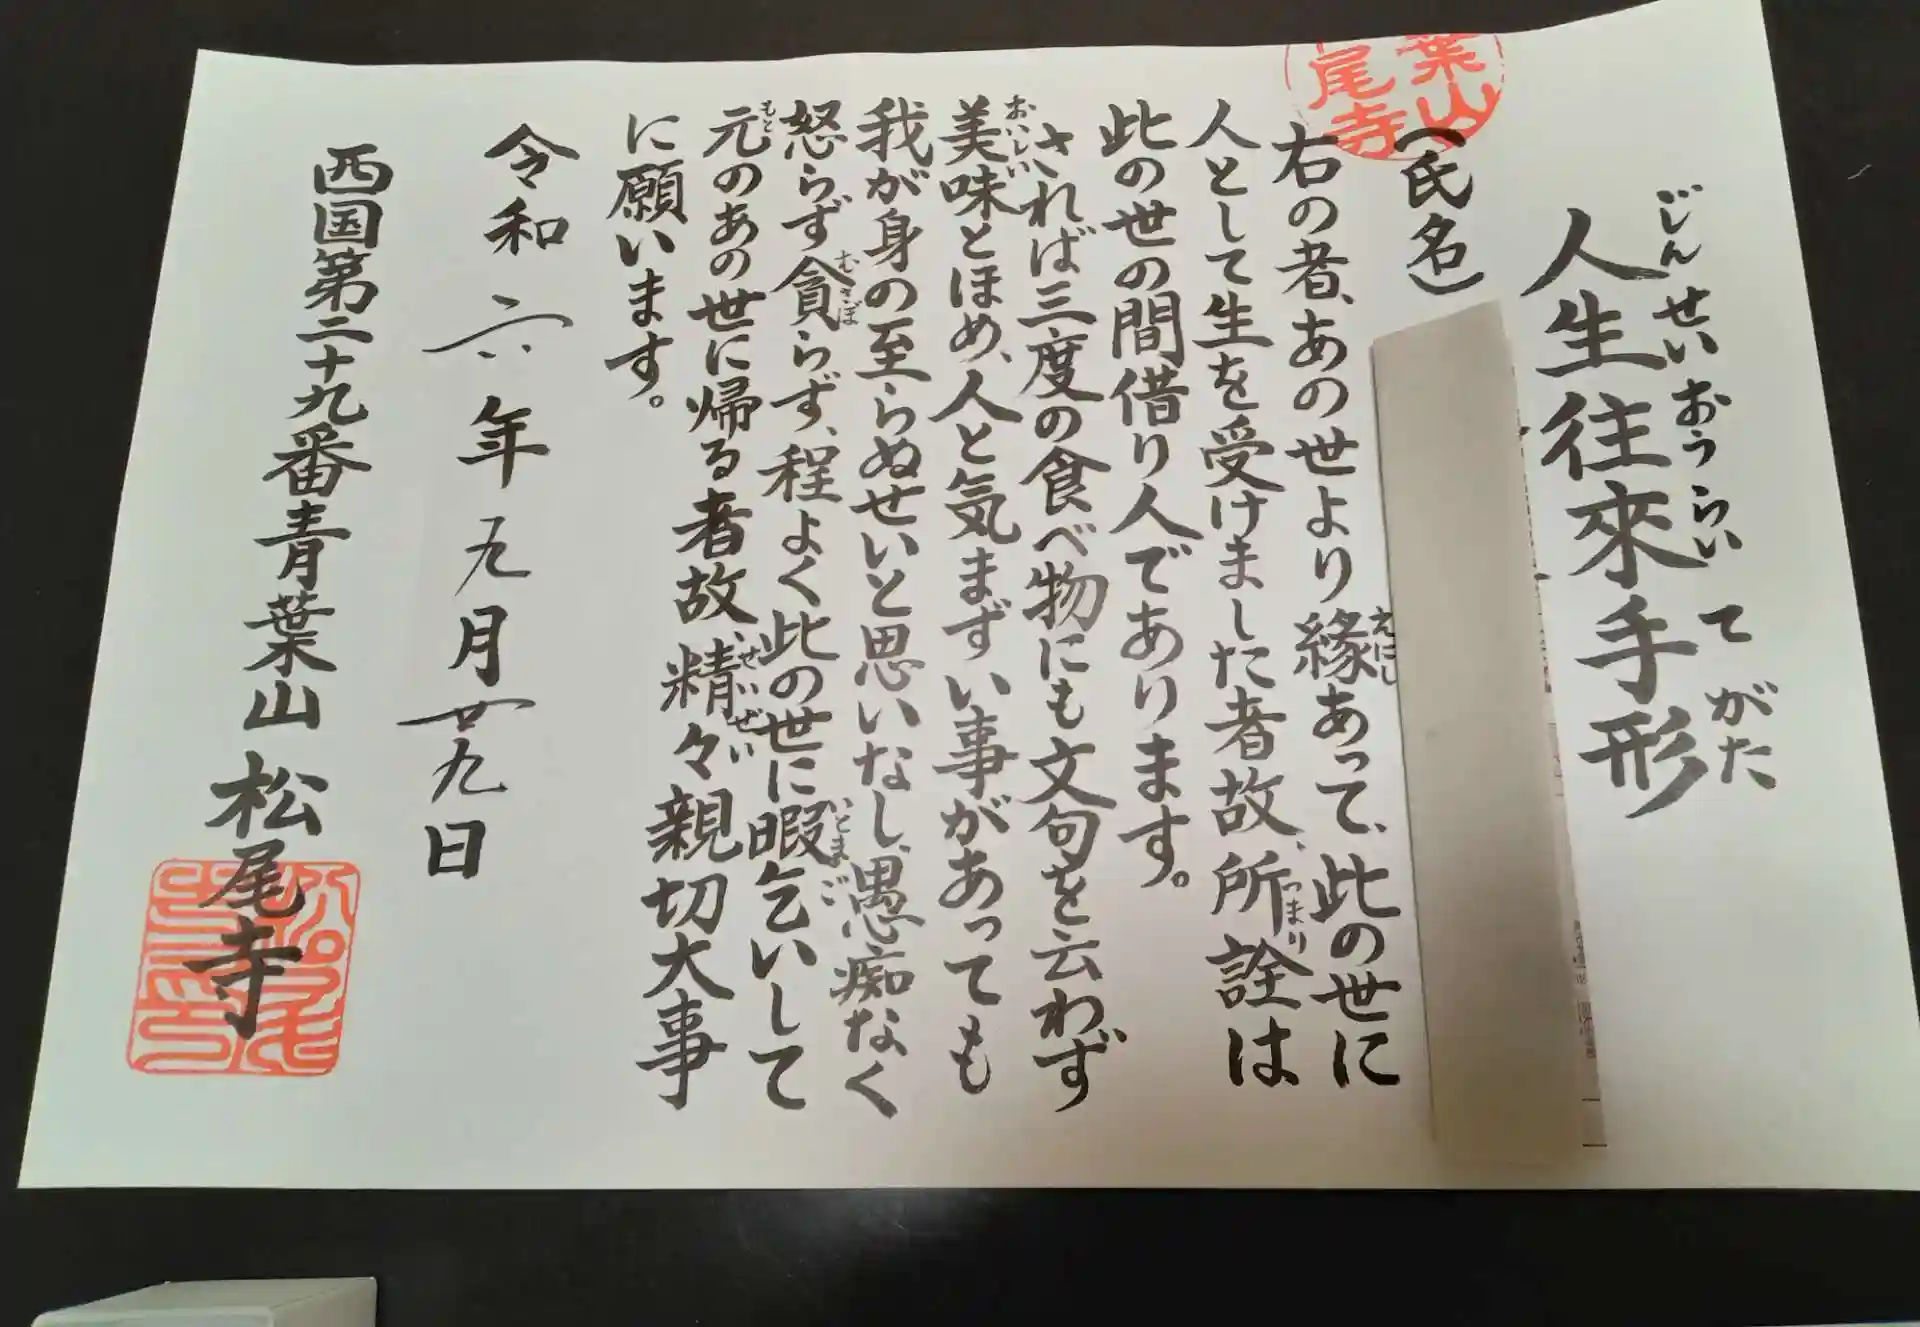 人生往來手形
じんせいおうらいてがた
(氏名)
右の者、あの世より緣あって、此の世に
えにし
人として生を受けました者故、所詮は
つまり
此の世の間借り人であります。
されば三度の食べ物にも文句を云わず
美味とほめ、人と気まずい事があっても
おいしい
我が身の至らぬせいと思いなし、愚痴なく
怒らず貪らず、程よく此の世に暇乞いして
むさぼ
いとまご
元のあの世に帰る者故、精々親切大事
もと
せいぜい
に願います。
令和六年九月廿九日
西国第二十九番青葉山松尾寺
葉山
尾寺